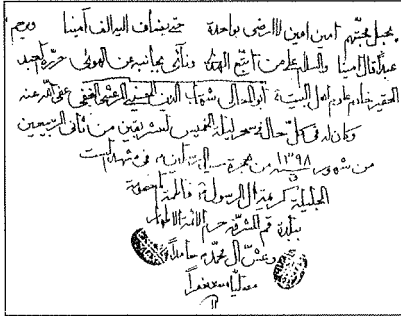 بحبل محبتهم آمين آمين لا أرضى بواحدة حتى يضاف إليه ألف آمينا ورحم
عبدا قال آمينا والسلام على من اتبع الهدى ونأى بجانبه عن الهوى حرره العبد
الحقير خادم علوم أهل البيت أبو المعالي شهاب الدين الحسيني المرعشي النجفي عفي الله عنه
وكان له في كل حال في سحر ليلة الخميس لعشرين من ثاني الربيعين
من شهور ١٣٩٨ من هجرة في مشهد الست
الجليلة كريمة آل الرسول فاطمة المعصومة
ببلدة قم المشرفة حرم الأئمة الأطهار
وعش آل محمد حامدا
مصليا مستغفرا